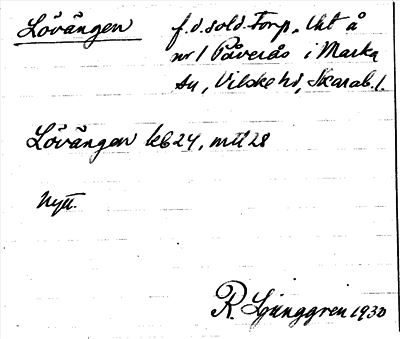 Lövängen f.d. sold. torp, Utt å
nr 1 Påverås i Marka
sn, Vilske hd, Skarab. l.
Lövängen kb 24, mtl 28
Nytt.
R. Ljunggren 1930